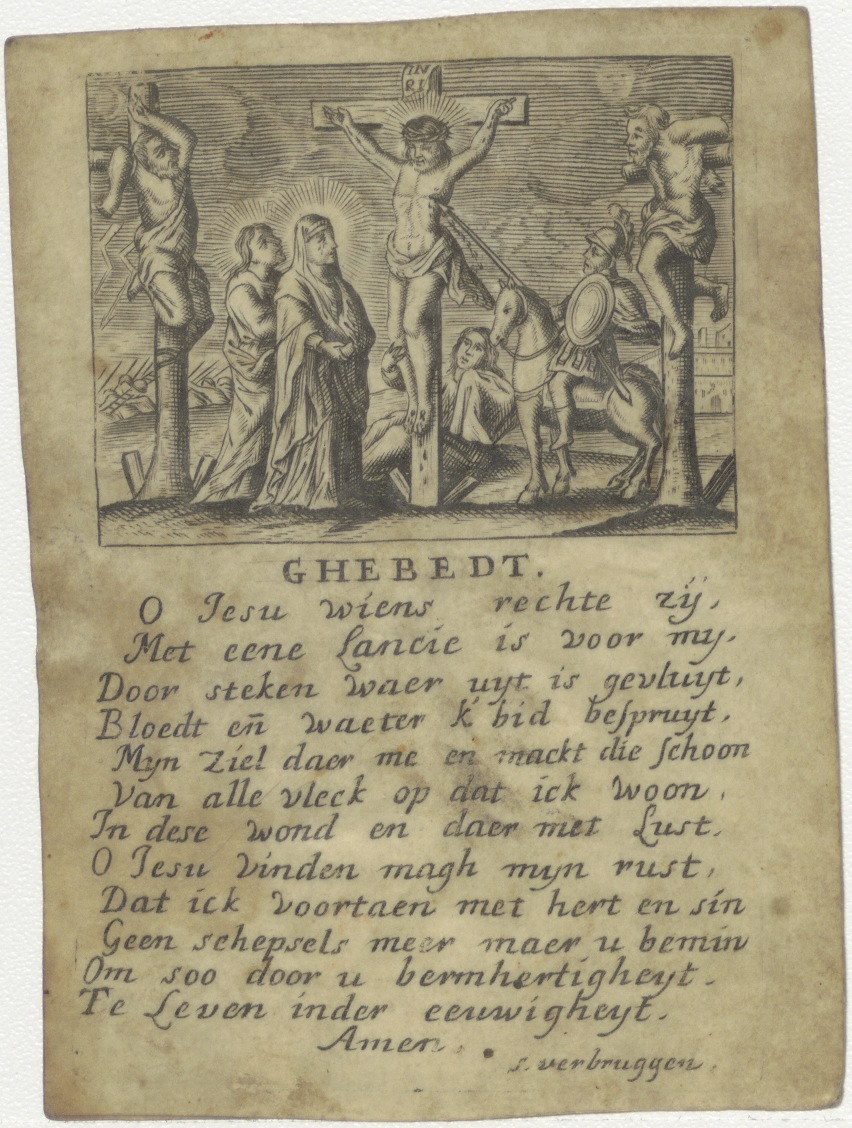 IN
RI
GHEBEDT.
O Jesu wiens rechte zÿ,
Met eene Lancie is voor my.
Door steken waer uyt is gevluyt,
Bloedt eñ waeter K bid beſpruyt,
Myn Ziel daer me en mackt die ſchoon
Van alle vleck op dat ick woon,
In dese wond en daer met Lust.
O Jesu vinden magh myn rust,
Dat ick voortaen met hert en sin
Geen schepsels meer maer u bemin
Om soo door u bermhertigheyt.
Te Leven inder eeuwigheyt.
Amen.
s. verbruggen.